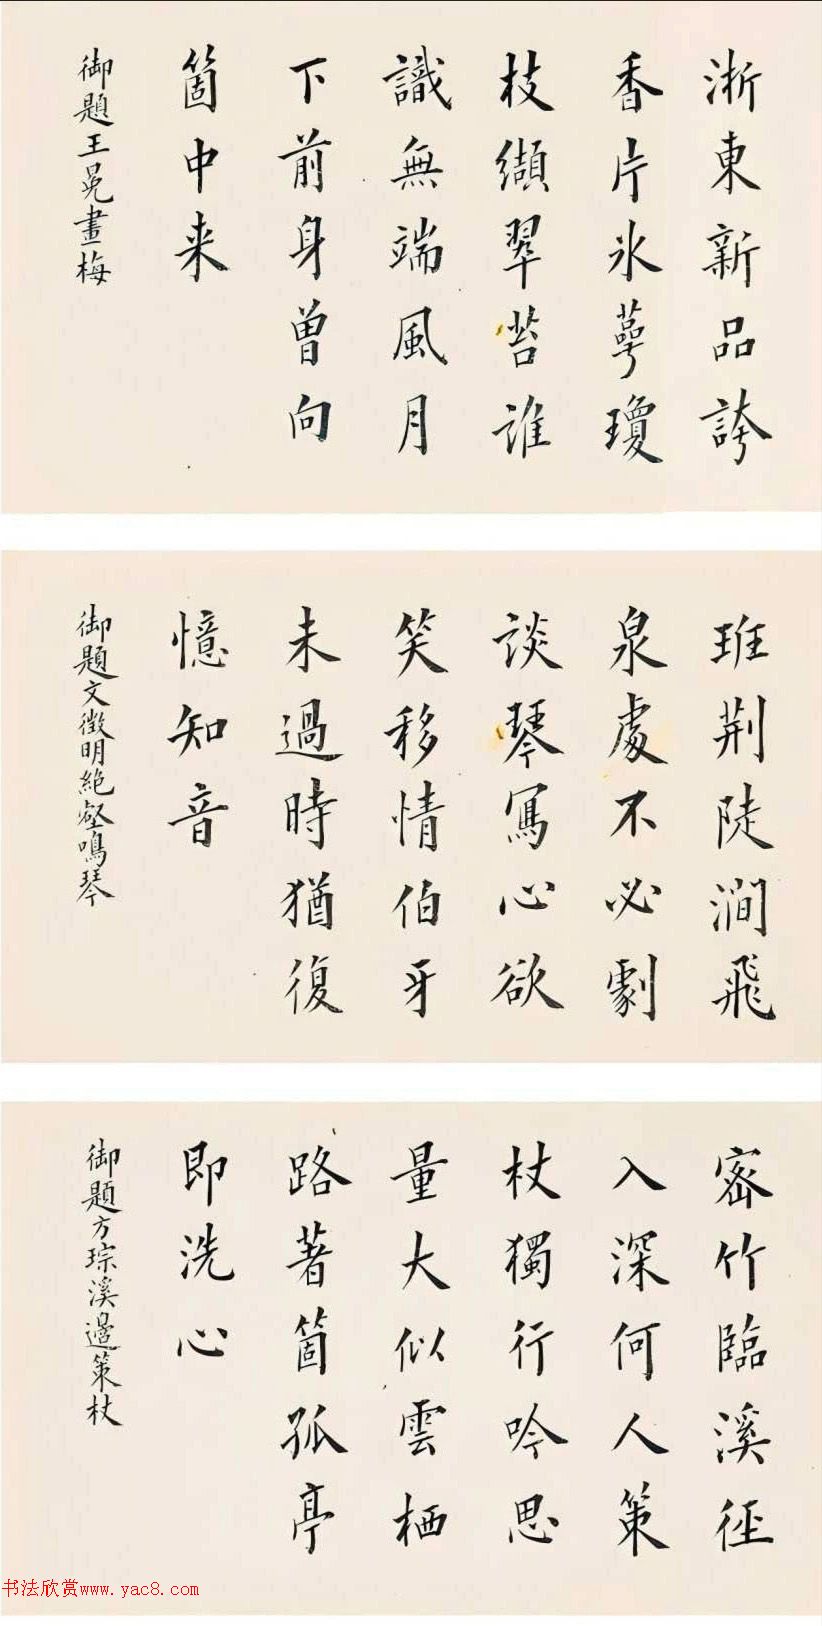 浙東新品誇
香片氷蕚瓊
枝纈翠苔誰
識無端風月
下前身曾向
箇中来
御題王冕畫梅
班荆陡澗飛
泉處不必劇
談琴寫心欲
笑移情伯牙
未過時猶復
憶知音
御題文徵明絶壑鳴琴
密竹臨溪徑
入深何人策
杖獨行吟思
量大似雲栖
路著箇孤亭
即洗心
御題方琮溪邊策杖
书法欣赏www.yac8.com